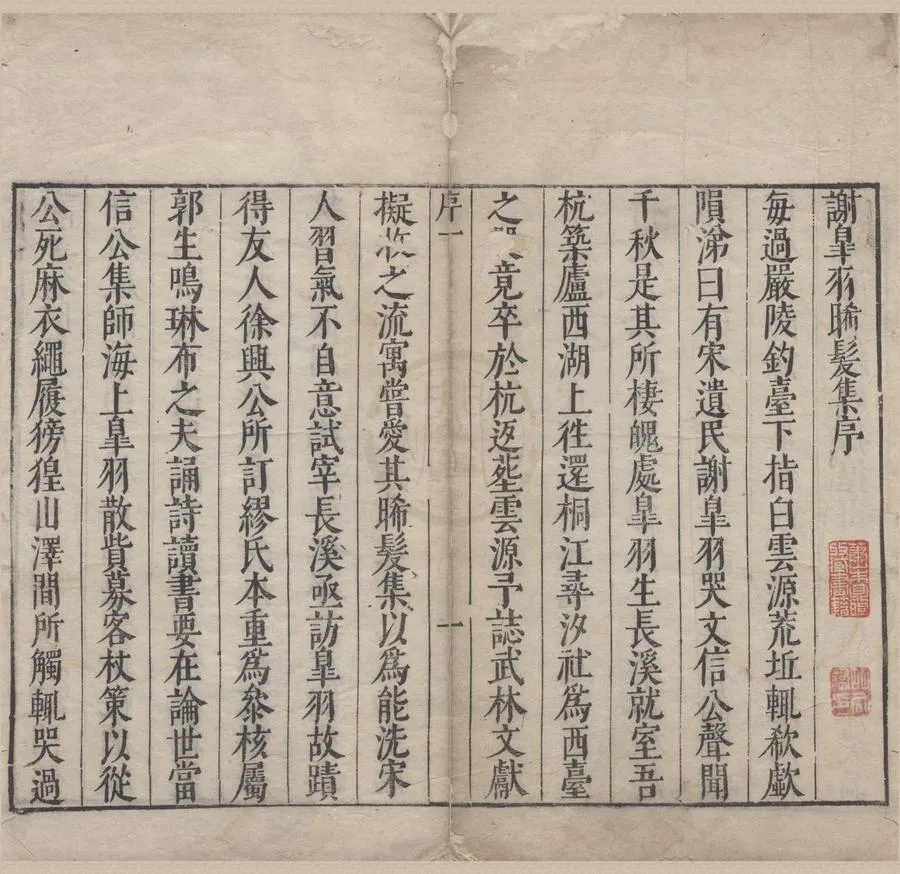 謝皐羽晞髮集序
每過嚴陵釣臺下指白雲源荒丘輒欷歔
隕涕曰有宋遺民謝皐羽哭文信公聲聞
千秋是其所棲魄處皐羽生長溪就室吾
杭築廬西湖上徃還桐江尋汐社為西臺
之 竟卒於杭返塟雲源予誌武林文獻
序一
一
擬收之流寓嘗愛其晞髮集以為能洗宋
人習氣不自意試宰長溪亟訪皐羽故蹟
得友人徐興公所訂繆氏本重為叅核屬
郭生鳴琳布之夫誦詩讀書要在論世當
信公集師海上皐羽散貲募客杖策以從
公死麻衣繩屨徬徨山澤間所觸輒哭過